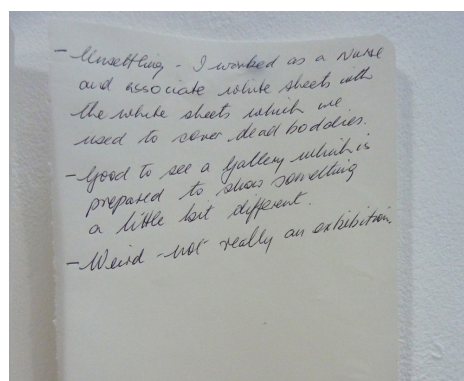 - Unsettling - I worked as a Nurse
and associate white sheets with
the white sheets which we
used to cover dead boddies.
- Good to see a Gallery which is
prepared to show something
a little bit different.
- Weird - not really an exhibition